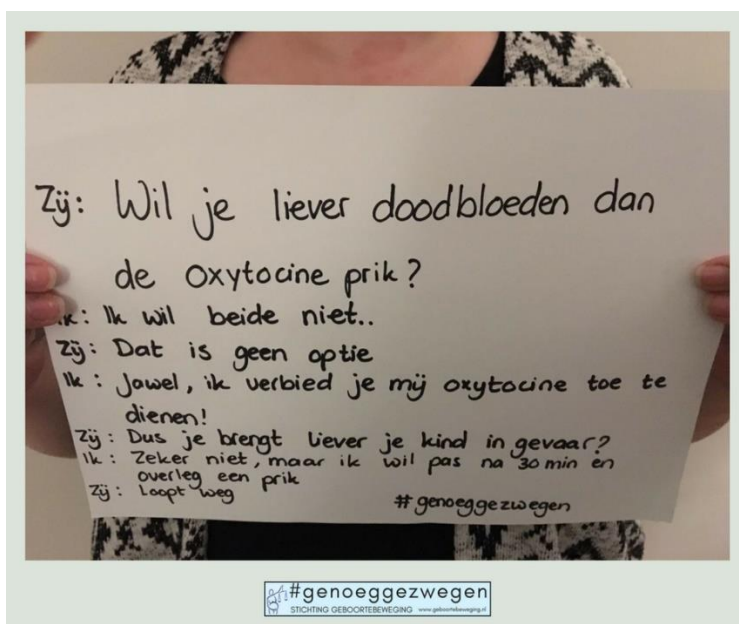 Zij: Wil je liever doodbloeden dan
de oxytocine prik?
Ik: Ik wil beide niet..
Zij: Dat is geen optie
Ik: Jawel, ik verbied je mij oxytocine toe te
dienen!
Zij: Dus je brengt liever je kind in gevaar?
Ik: Zeker niet, maar ik wil pas na 30 min en
overleg een prik
Zij: Loopt weg
#genoeggezwegen
#genoeggezwegen
STICHTING GEBOORTEBEWEGING www.geboortebeweging.nl